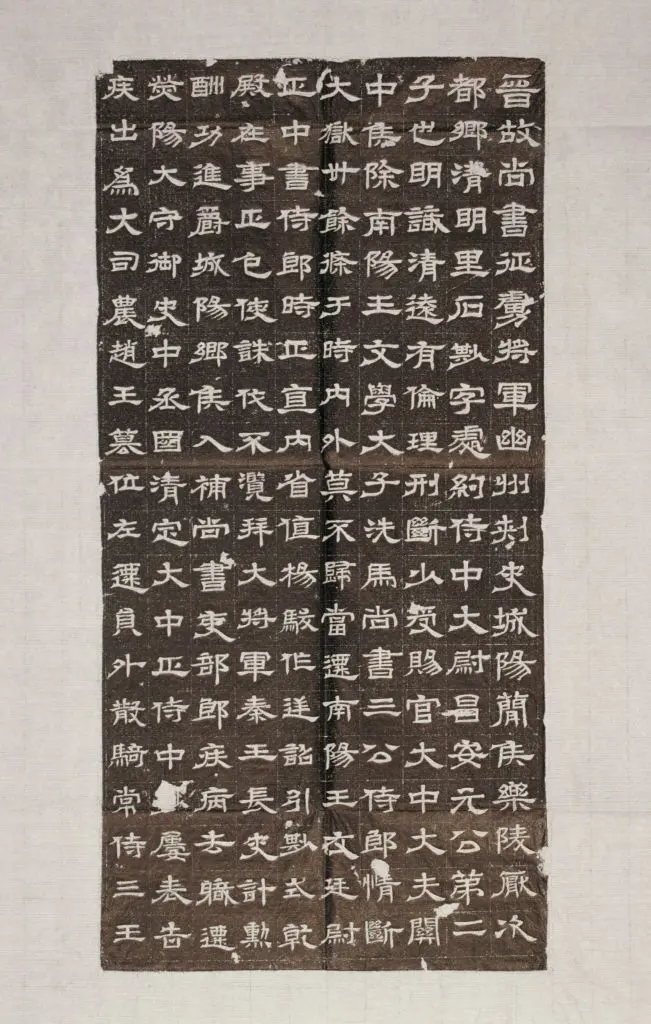 晉故尚書征虜將軍幽州刺史城陽簡侯樂陵厭次
都鄉清明里石尠字處約侍中大尉昌安元公第二
子也明識清遠有倫理刑斷少受賜官大中大夫關
中侯除南陽王文學大子洗馬尚書三公侍郎情斷
大獄卅餘條于時內外莫不歸當遷南陽王友廷尉
正中書侍郎時正直內省值楊駿作逆詔引尠式乾
殿在事正色使誅伐不濫拜大將軍秦王長史計勳
酬功進爵城陽鄉侯入補尚書吏部郎疾病去職遷
熒陽大守御史中丞國清定大中正侍中屢表告
疾出為大司農趙王篡位左遷員外散騎常侍三王